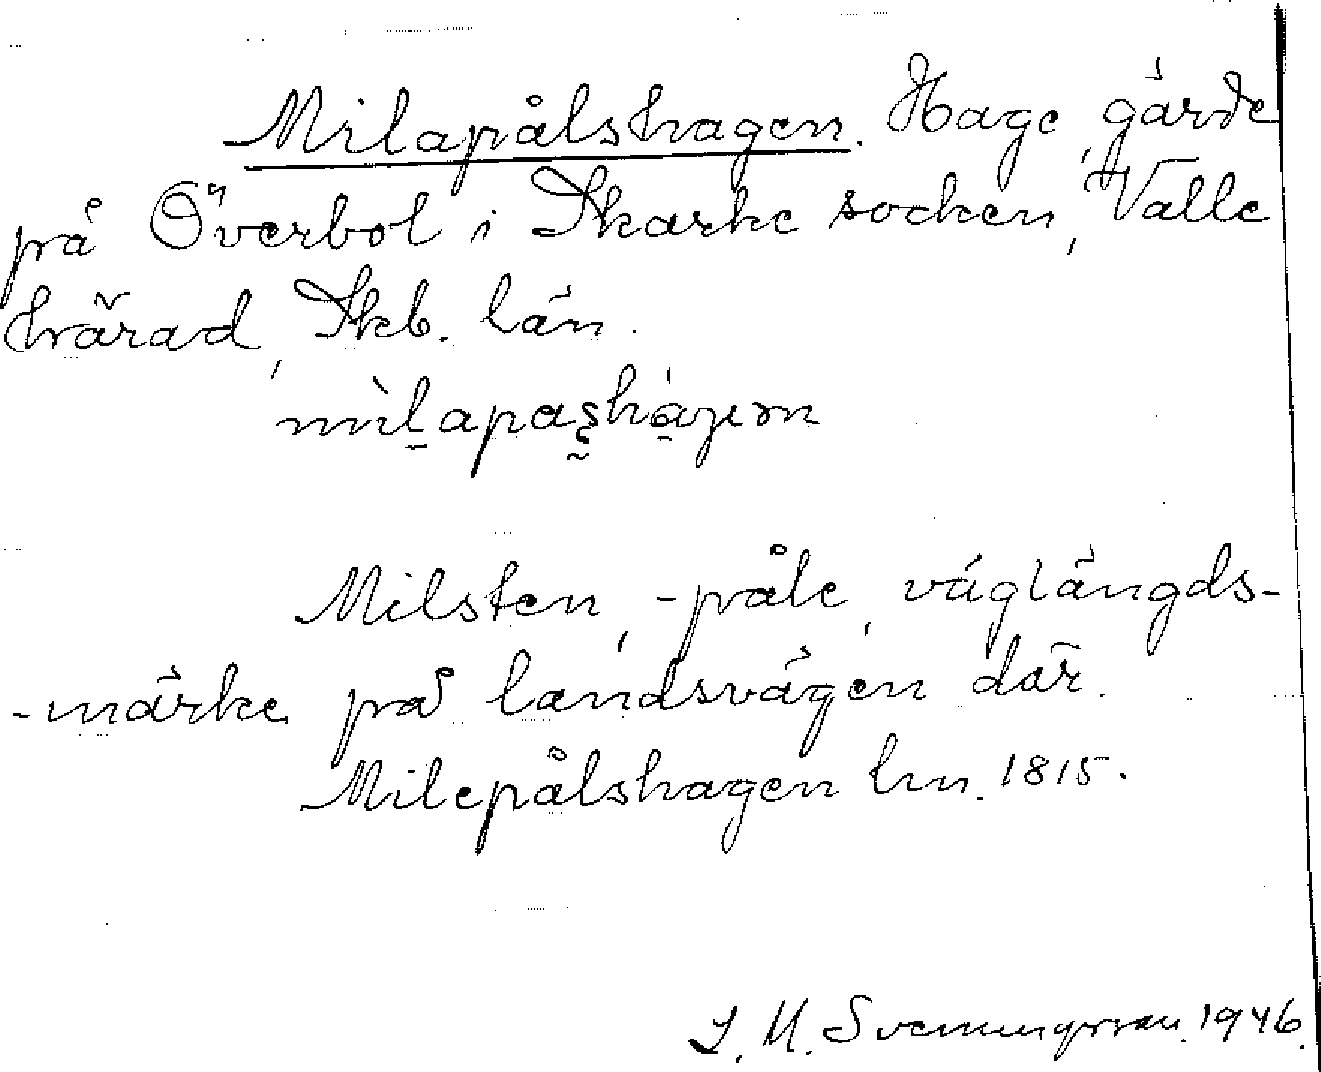 Milapålshagen. Hage, gärde
på Överbol i Skarke socken, Valle
härad, Skb. län.
Milsten, -påle, väglängds-
-märke på landsvägen där.
Milepålshagen lm. 1815.
J. M. Svenungsson. 1946.